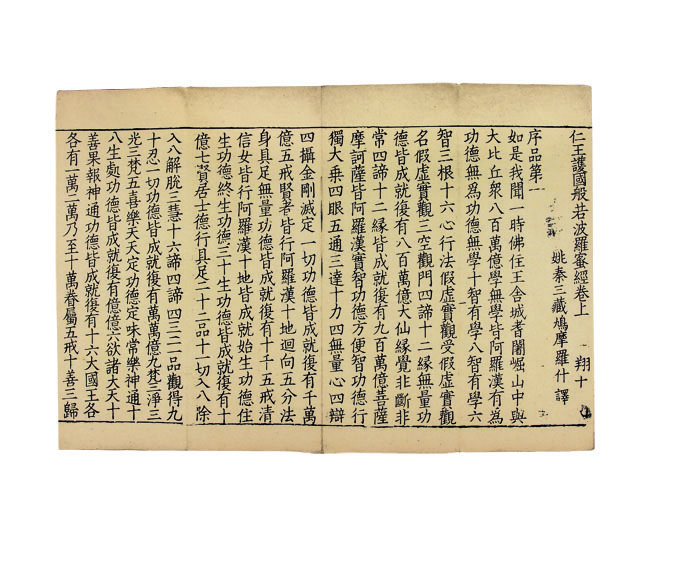 仁王護國般若波羅蜜經卷上 翔十
姚秦三藏鳩摩羅什譯
序品第一
如是我聞一時佛住王舍城耆闍崛山中與
大比丘衆八百萬億學無學皆阿羅漢有為
功德無為功德無學十智有學八智有學六
智三根十六心行法假虛實觀受假虛實觀
名假虛實觀三空觀門四諦十二緣無量功
德皆成就復有八百萬億大仙緣覺非斷非
常四諦十二緣皆成就復有九百萬億菩薩
摩訶薩皆阿羅漢實智功德方便智功德行
獨大乗四眼五通三達十力四無量心四辯
四攝金剛滅定一切功德皆成就復有千萬
億五戒賢者皆行阿羅漢十地迴向五分法
身具足無量功德皆成就復有十千五戒清
信女皆行阿羅漢十地皆成就始生功德住
生功德終生功德三十生功德皆成就復有十
億七賢居士德行具足二十二品十一切入八除
入八解脫三慧十六諦四諦四三二一品觀得九
十忍一切功德皆成就復有萬萬億九梵三淨三
光三梵五喜樂天天定功德定味常樂神通十
八生處功德皆成就復有億億六欲諸大天十
善果報神通功德皆成就復有十六大國王各
各有一萬二萬乃至十萬眷屬五戒十善三歸